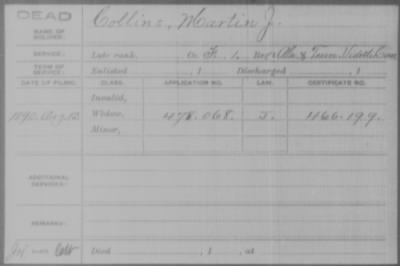 DEAD
NAME OF SOLDIER: Collins, Martin J.
SERVICE: Late rank, Co. F. 1, Reg't Ala & Tenn Cav
TERM OF SERVICE: Enlisted , 1 Discharged , 1
DATE OF FILING. CLASS. APPLICATION NO. LAW. CERTIFICATE NO.
Invalid,
1890 Aug 13 Widow, 478.068. J. 466.199.
Minor,
ADDITIONAL SERVICES:
REMARKS:
Died , 1 , at